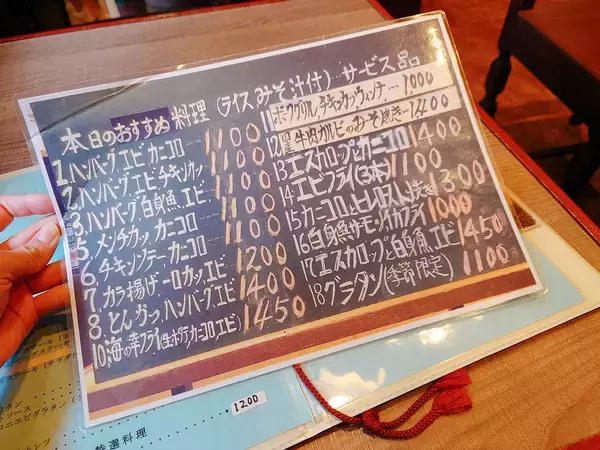 本日のおすすめ料理(ライスみそ汁付)…サービス品
1,ハンバーグエビカニコロ 1100
2,ハンバーグエビチキンカツ 1100
3,ハンバーグ白身魚、エビ 1100
5,メンチカツ、カニコロ 1100
6,チキンソテーカニコロ 1100
7,カラ揚げ一口カツ、エビ 1200
8,とんかつハンバーグエビ 1400
10,海の幸フライ(生ホタテカニコロエビ) 1450
11 ポークグリル,チキンカツ,ウィンナ,…1000
12 牛肉カルビの 1400
13 エスカロップとカニコロ 1400
14 エビフライ(3本) 1100
15 カニコロ,ヒレ 1300
16 白身魚サーモン,イカフライ 1000
17 エスカロップと白身魚、エビ 1450
18 グラタン(季節限定) 1100
1200
選料理